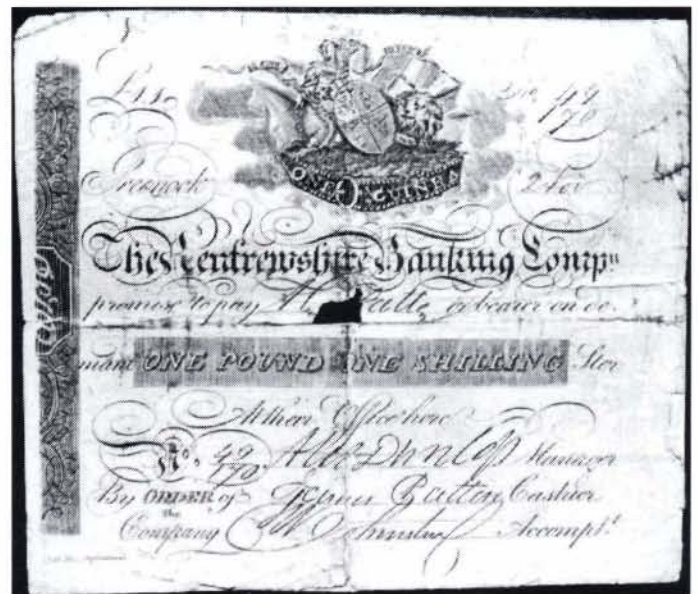 £1,,1,,
No. 49/170
ONE GUINEA
Greenock 2 Feb
The Renfrewshire Banking Compy
promise to pay or bearer on de-
mand ONE POUND ONE SHILLING Ster
At their Office here
No. 49/170 Alex Dunlop Manager
By ORDER of James Cashier
the
Company Johnston Accompt.t